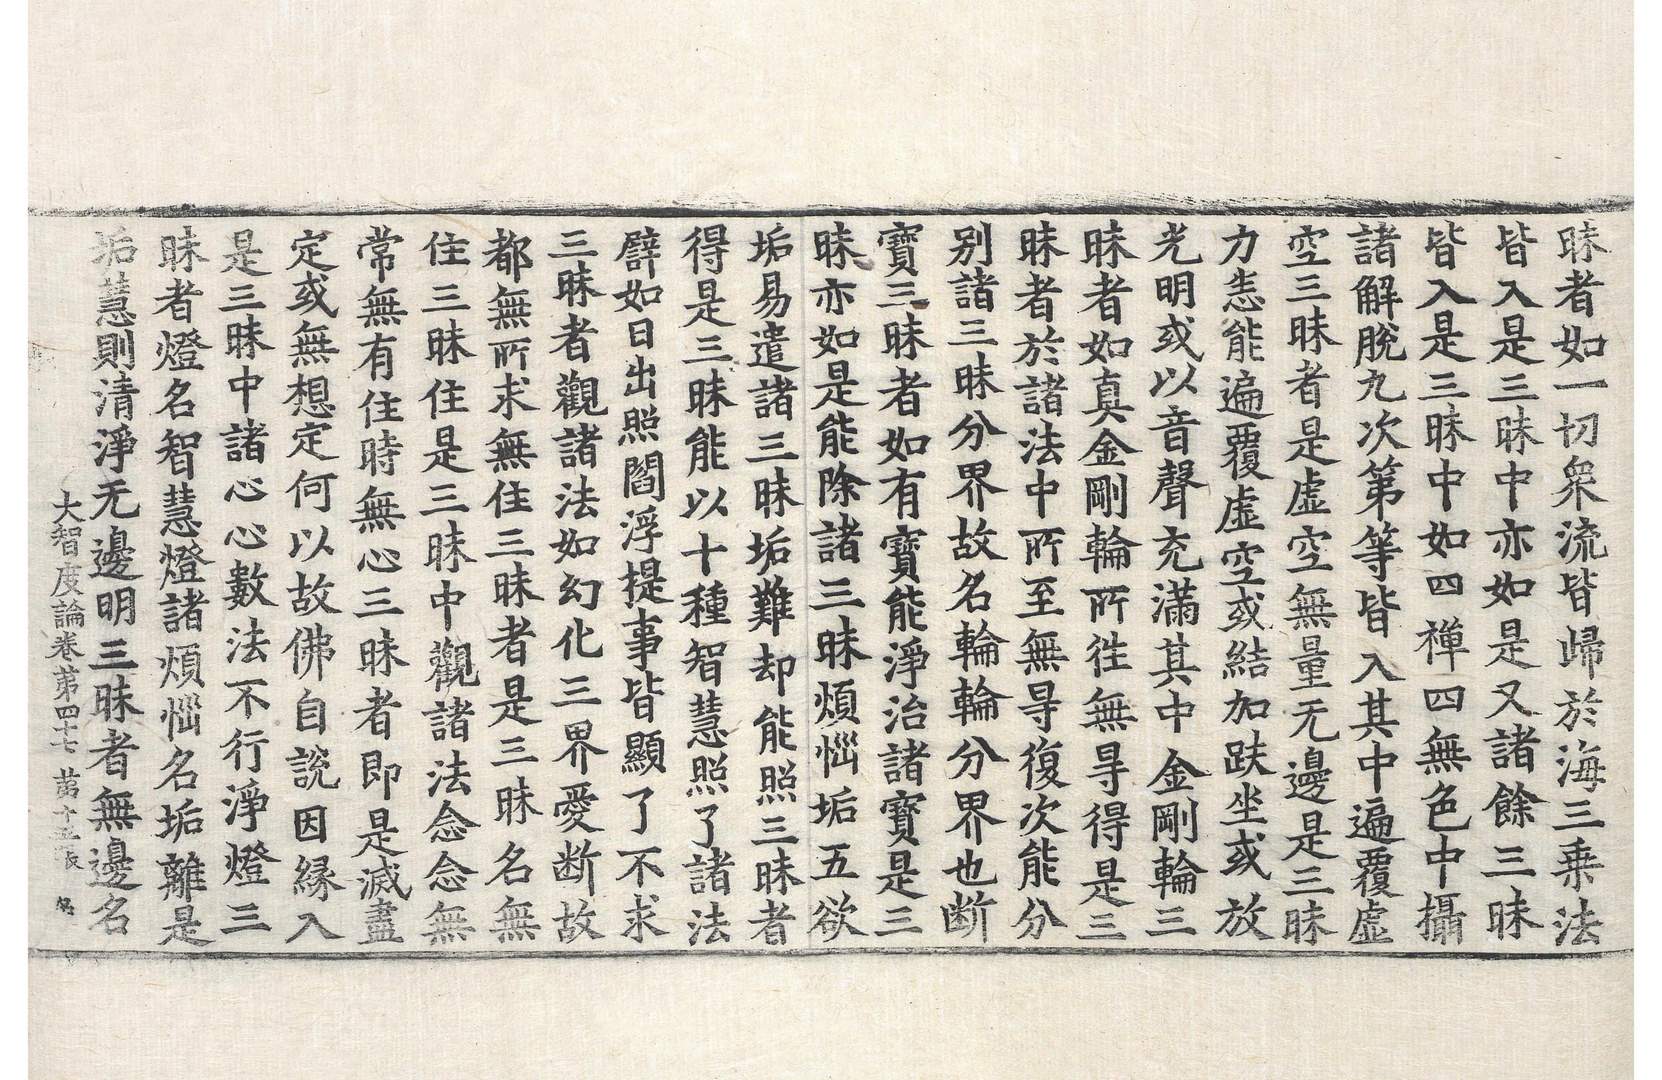 昧者如一切衆流皆歸於海三乗法
皆入是三昧中亦如是又諸餘三昧
皆入是三昧中如四禪四無色中攝
諸解脫九次第等皆入其中遍覆虛
空三昧者是虛空無量无邊是三昧
力悉能遍覆虛空或結加趺坐或放
光明或以音聲充滿其中金剛輪三
昧者如真金剛輪所徃無㝵得是三
昧者於諸法中所至無㝵復次能分
别諸三昧分界故名輪輪分界也断
寶三昧者如有寶能淨治諸寶是三
昧亦如是能除諸三昧煩惱垢五欲
垢易遣諸三昧垢難却能照三昧者
得是三昧能以十種智慧照了諸法
譬如日出照閻浮提事皆顯了不求
三昧者觀諸法如幻化三界愛断故
都無所求無住三昧者是三昧名無
住三昧住是三昧中觀諸法念念無
常無有住時無心三昧者即是滅盡
定或無想定何以故佛自說因緣入
是三昧中諸心心數法不行淨燈三
昧者燈名智慧燈諸煩惱名垢離是
垢慧則清淨无邊明三昧者無邊名
大智度論卷第四十七 第十五張